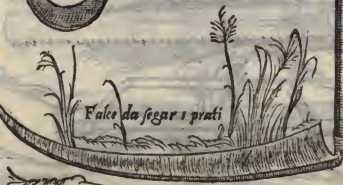 Falce da segar i prati